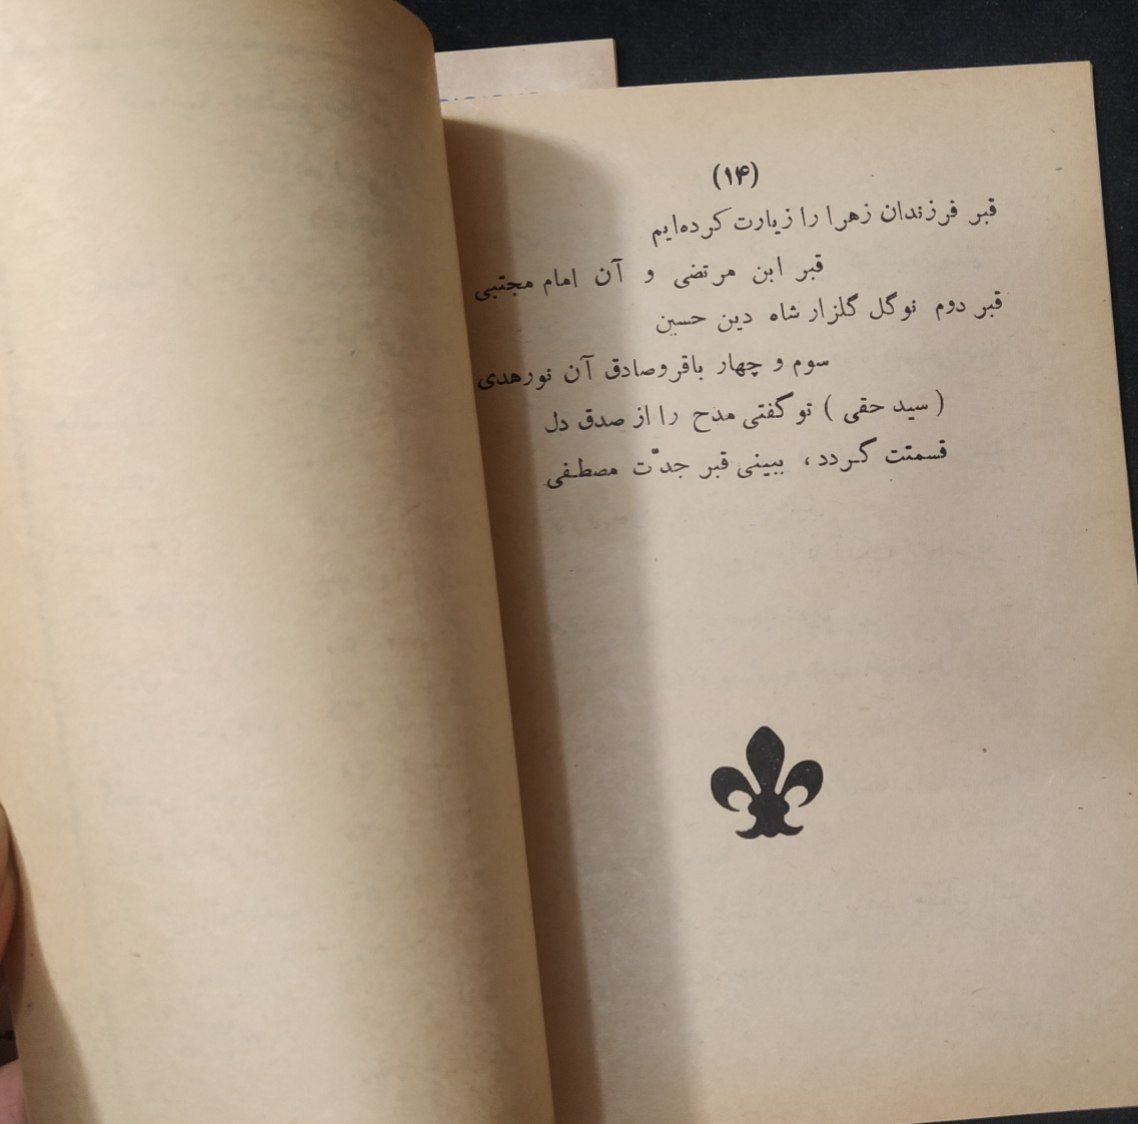 (۱۴)
قبر فرزندان زهرا را زیارت کرده‌ایم
قبر ابن مرتضی و آن امام مجتبی
قبر دوم نوگل گلزار شاه دین حسین
سوم و چهار باقروصادق آن نورهدی
( سید حقی ) تو گفتی مدح را از صدق دل
قسمتت گردد، ببینی قبر جدّت مصطفی